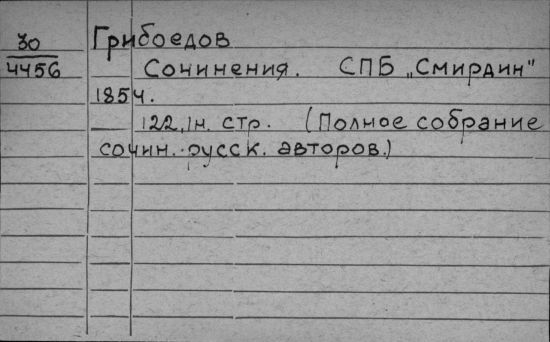 30
4456
Грибоедов
Сочинения. СПБ „Смирдин"
1854.
122, 1н. стр. (Полное собрание
сочин. русск. авторов.)